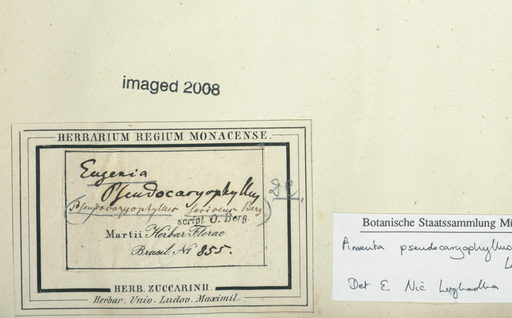 imaged 2008
HERBARIUM REGIUM MONACENSE.
Eugenia
Pseudocaryophyllus
(Pseudocaryophyllus sericeus Berg)
script. O. Berg.
Martii Herbar. Florae
Brasil. No 855.
HERB. ZUCCARINII.
Herbar. Univ. Ludov. Maximil.
Botanische Staatssammlung Mü
Pimenta pseudocaryophyllus
L
Det E. Nic Lughadha